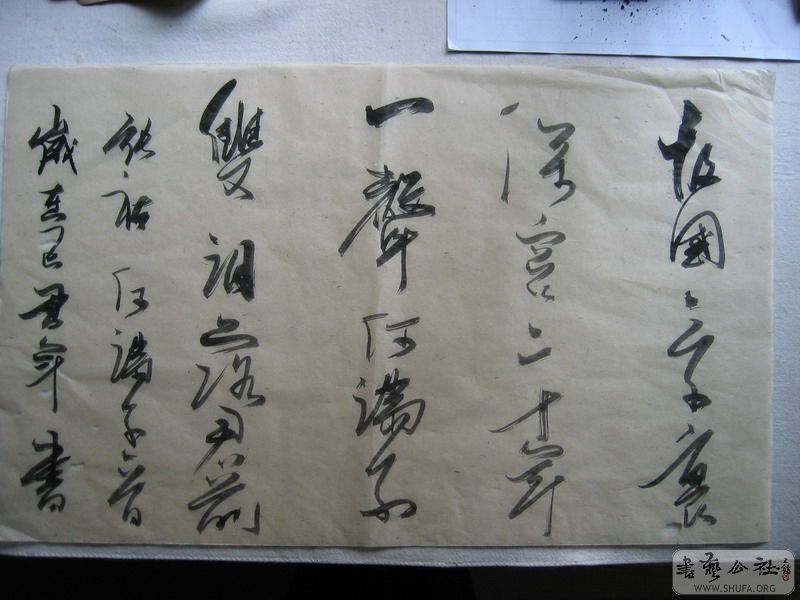 故國三千裏
深宮二十年
一聲何滿子
雙泪落君前
張祜何滿子一首
歲在 年書
書藝公社
WWW.SHUFA.ORG